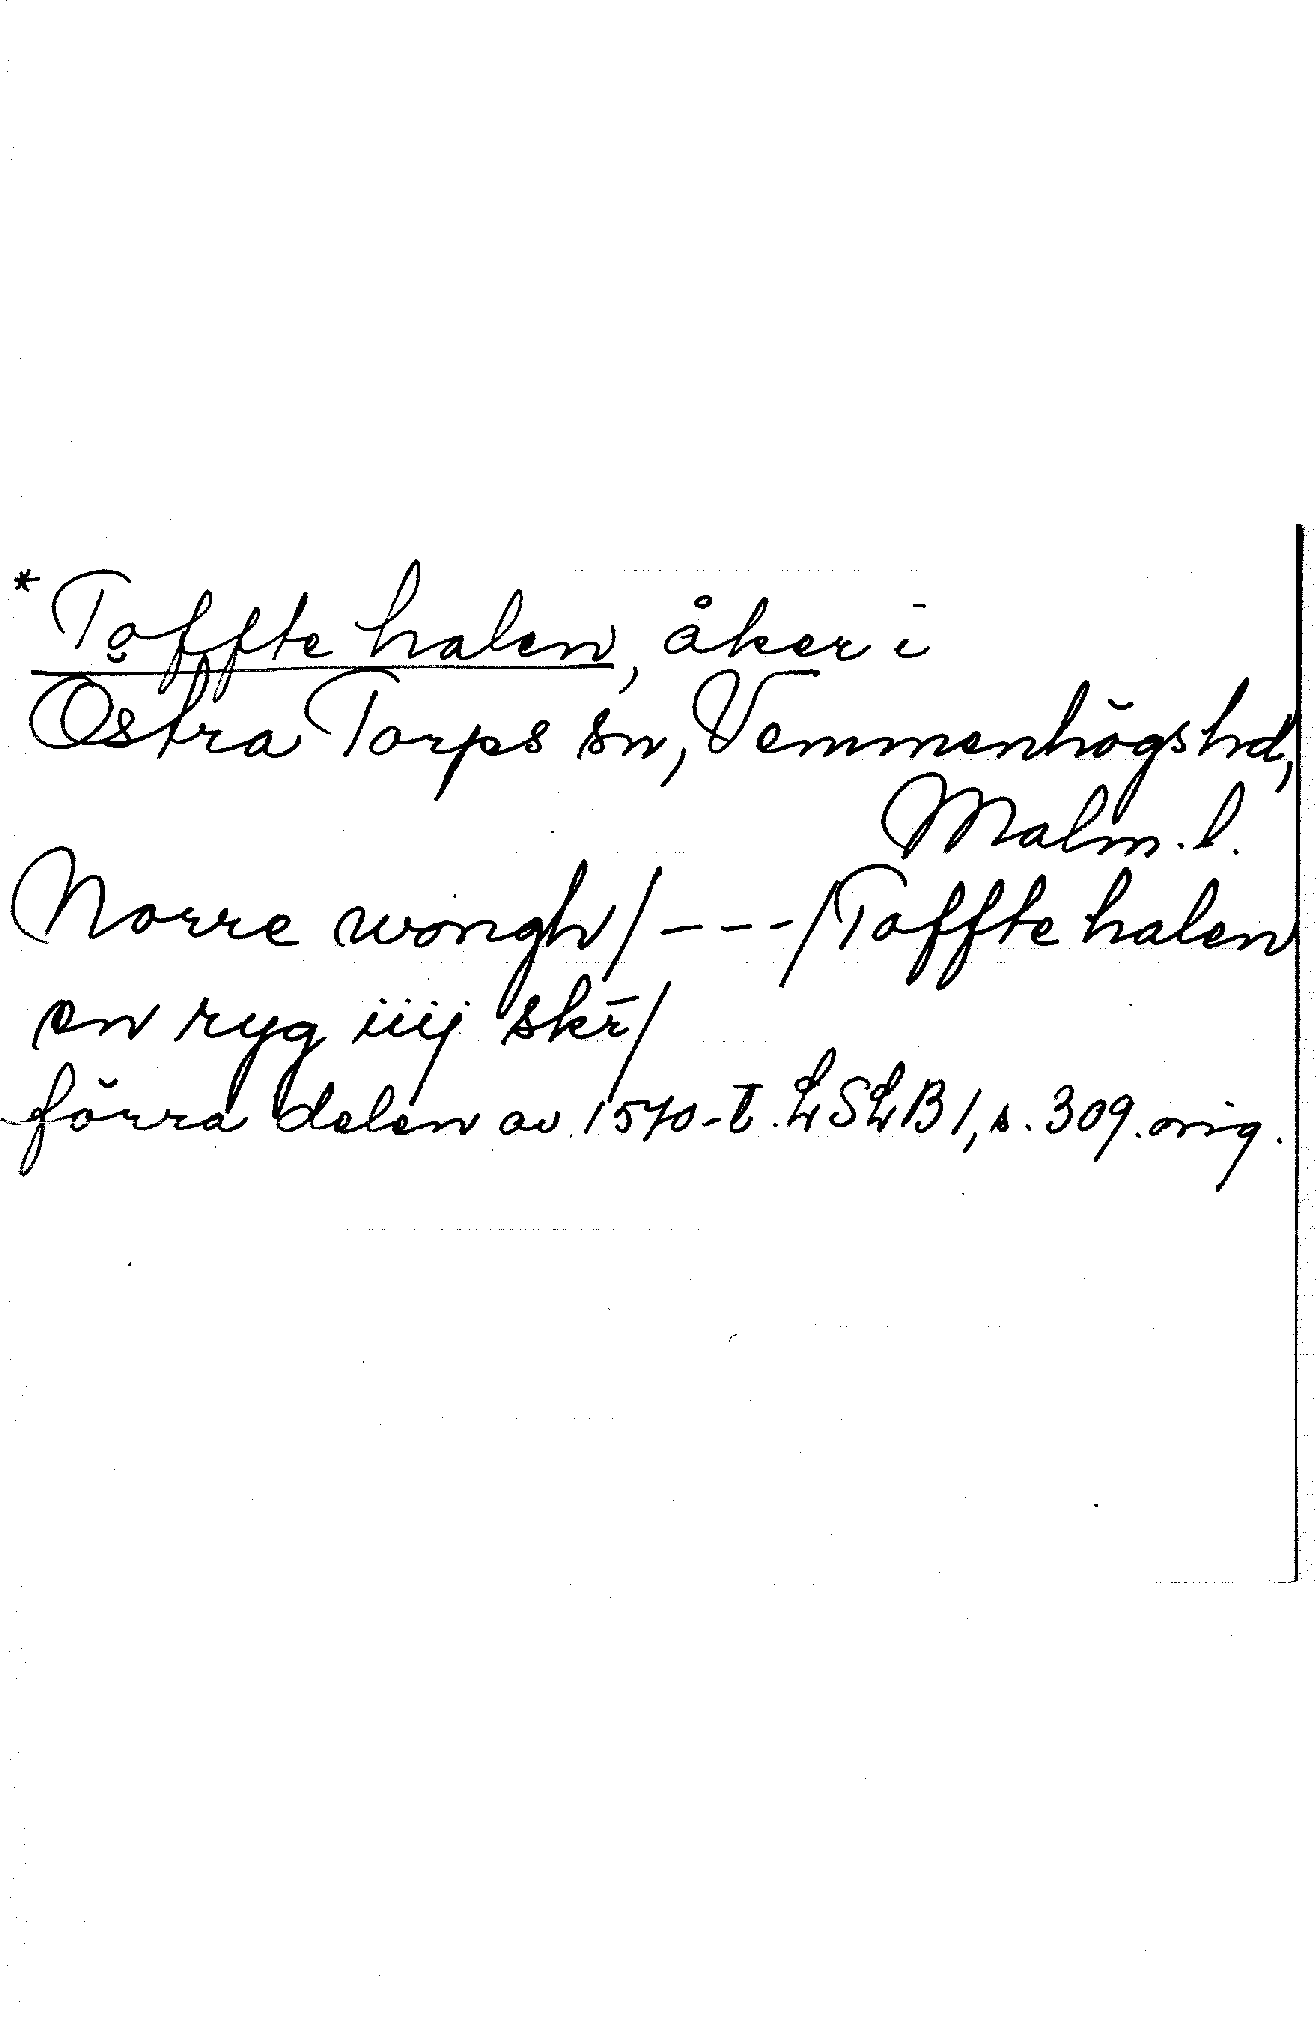 *Tǫffte halen, åker i
Östra Torps sn, Vemmenhögs hd,
Malm. l.
Norre wongh/---/Toffte halen
en ryg iiij skr̄/
förra delen av 1570-t. LSLB 1, s. 309. orig.